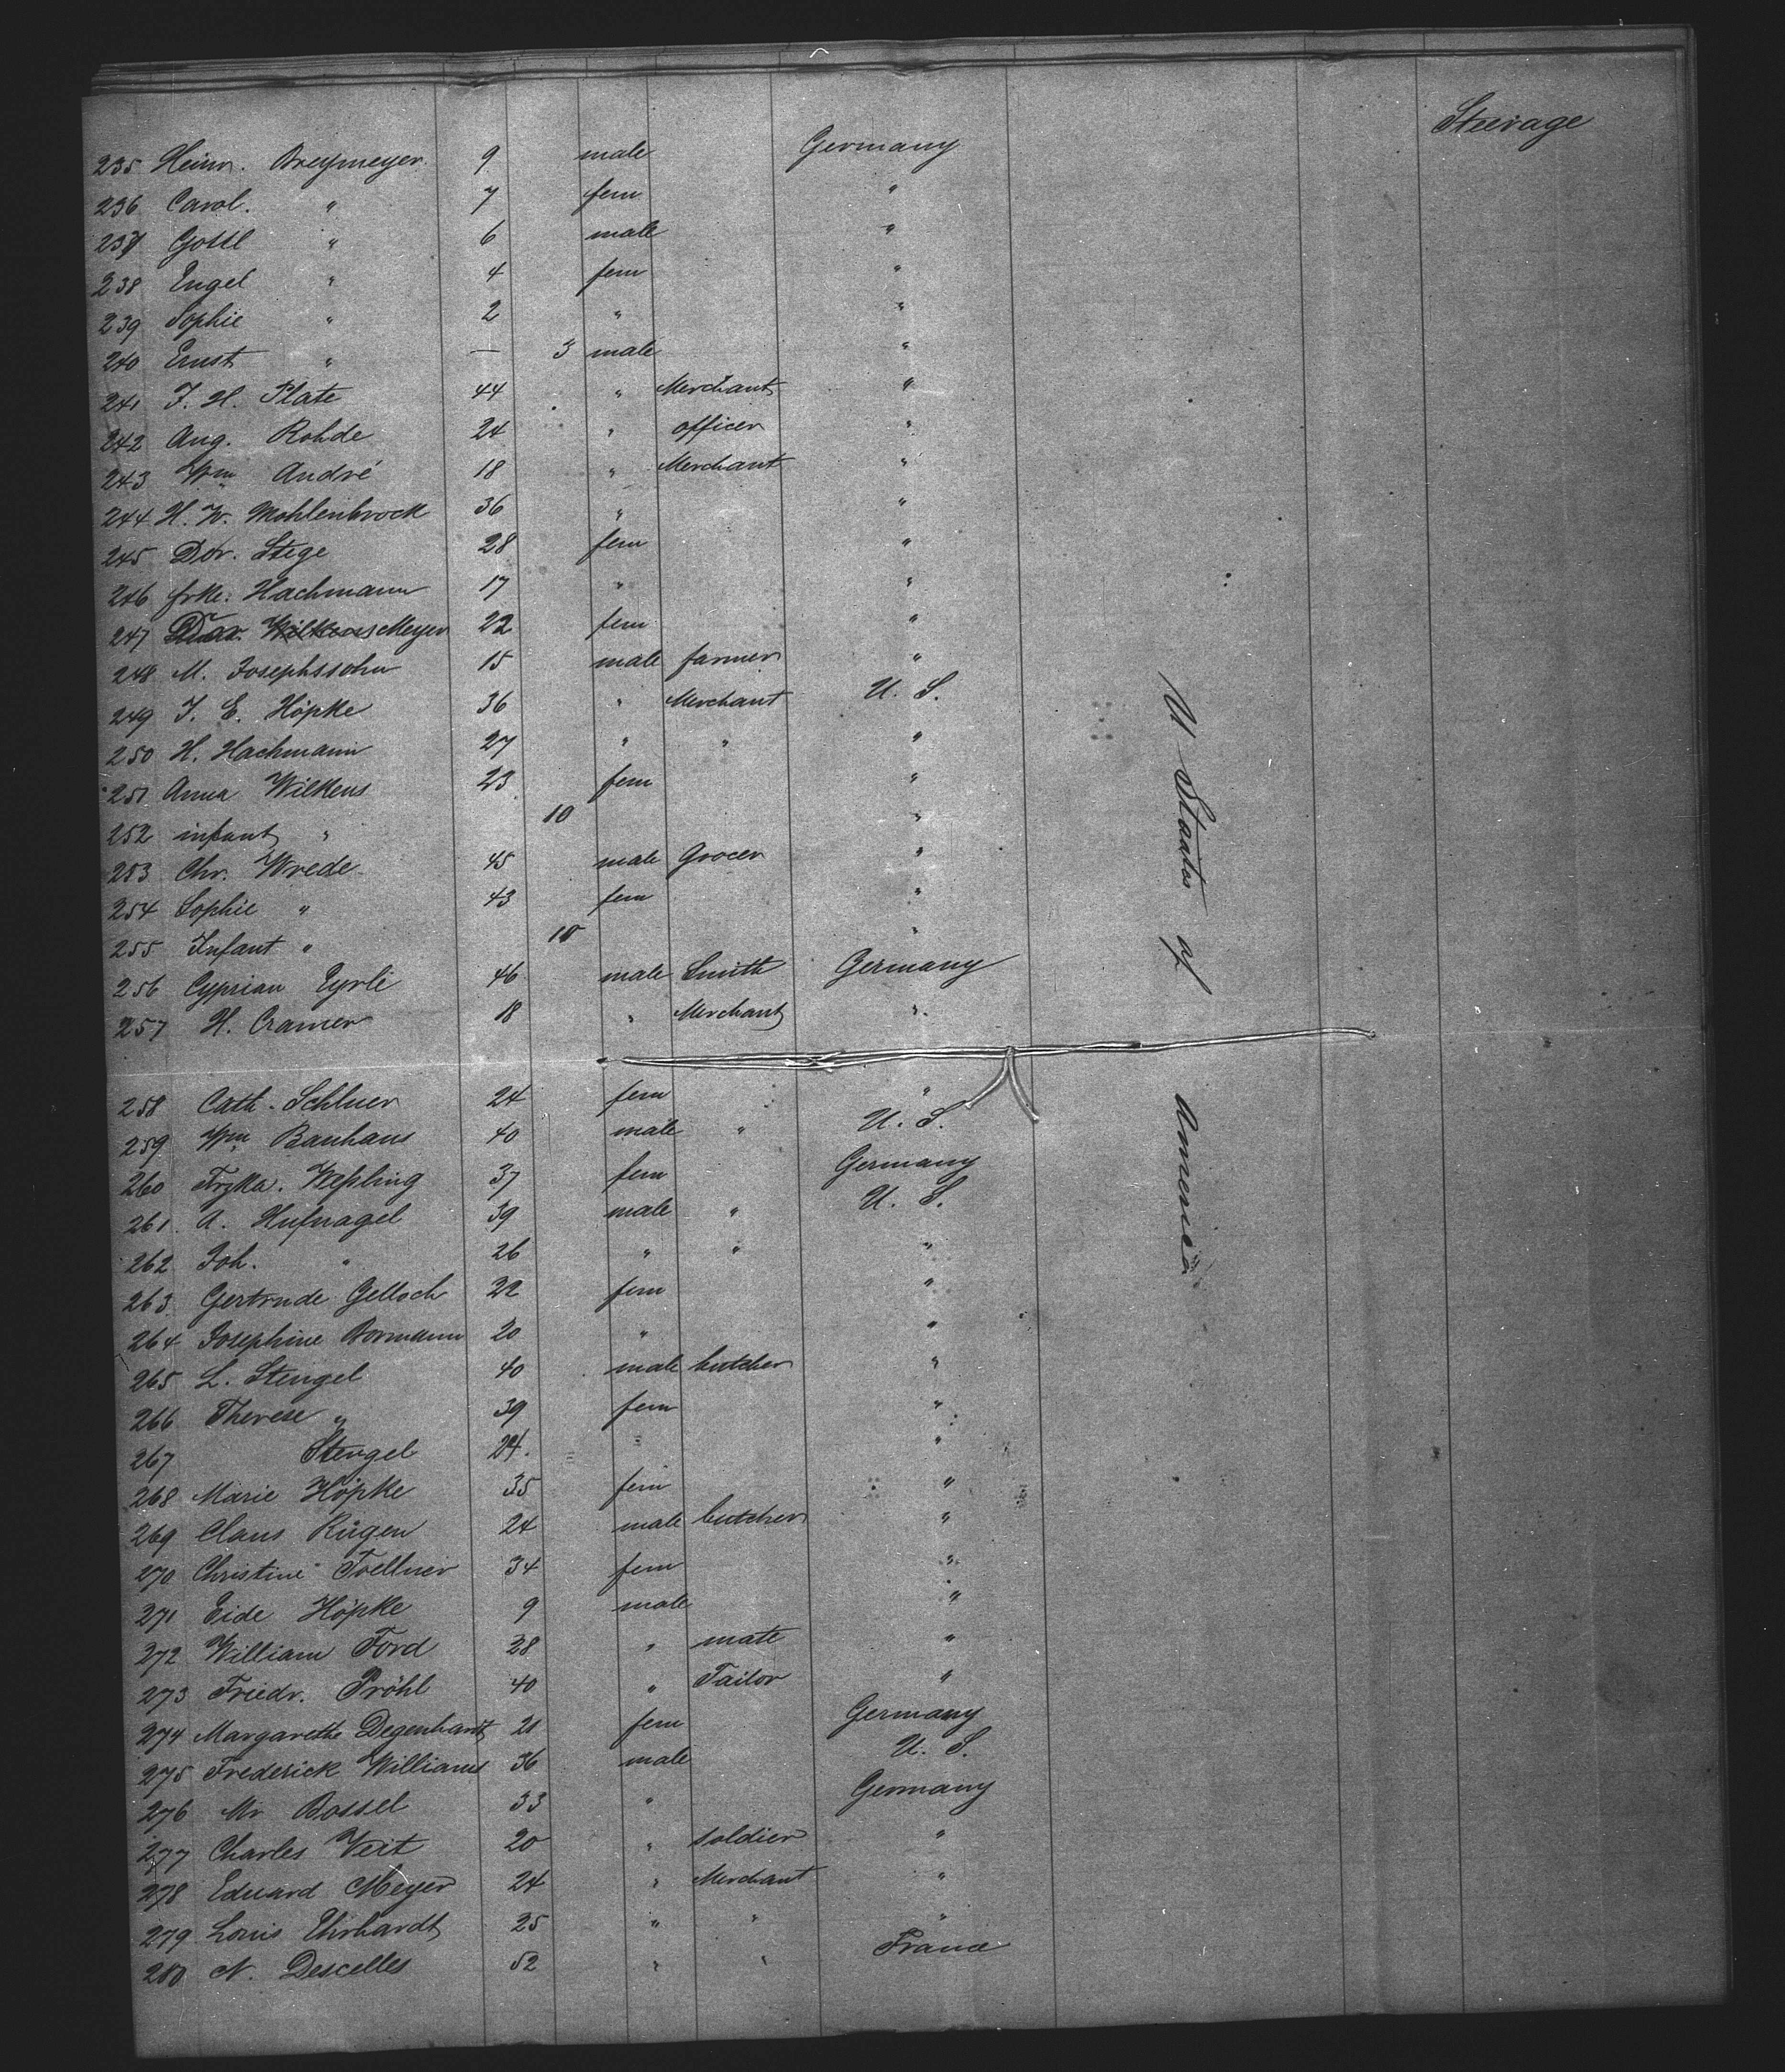 Steerage
235 Heinr. Breymeyer 9 male Germany
236 Carol. " 7 fem "
237 Gottl " 6 male "
238 Engel " 4 fem "
239 Sophie " 2 " "
240 Ernst " — 3 male "
241 J. H. Plate 44 " Merchant "
242 Aug. Rohde 24 " officer "
243 Wm André 18 " Merchant "
244 H. W. Mohlenbrock 36 " "
245 Dor. Stege 28 fem "
246 frke. Hachmann 17 " "
247 Dor. Wilkens Meyer 22 fem "
248 M. Josephssohn 15 male farmer "
249 J. E. Höpke 36 " Merchant U. S.
250 H. Hachmann 27 " " "
251 Anna Wilkens 23 fem "
252 infant " 10 "
253 Chr. Wrede 45 male Grocer "
254 Sophie " 43 fem "
255 Infant " 10 "
256 Cyprian Eyrle 46 male Smith Germany
257 H. Cramer 18 " Merchant "
258 Cath. Schluer 24 fem " "
259 Wm Banhans 40 male " U. S.
260 Frzka. Weßling 37 fem Germany
261 A. Hufnagel 39 male " U. S.
262 Joh. " 26 " " "
263 Gertrude Gelloch 22 fem "
264 Josephine Bormann 20 " "
265 L. Stengel 40 male butcher "
266 Therese " 39 fem "
267 Stengel 24. "
268 Marie Höpke 35 fem "
269 Claus Rügen 24 male butcher "
270 Christine Toellner 34 fem "
271 Eide Höpke 9 male "
272 William Ford 28 " mate "
273 Friedr. Pröhl 40 " Tailor "
274 Margarethe Degenhardt 21 fem Germany
275 Frederick Williams 36 male U. S.
276 Mr Bossel 33 " Germany
277 Charles Veit 20 " soldier "
278 Eduard Meyer 24 " Merchant "
279 Louis Ehrhardt 25 " " "
280 N. Descelles 52 " " France
U Staates of America